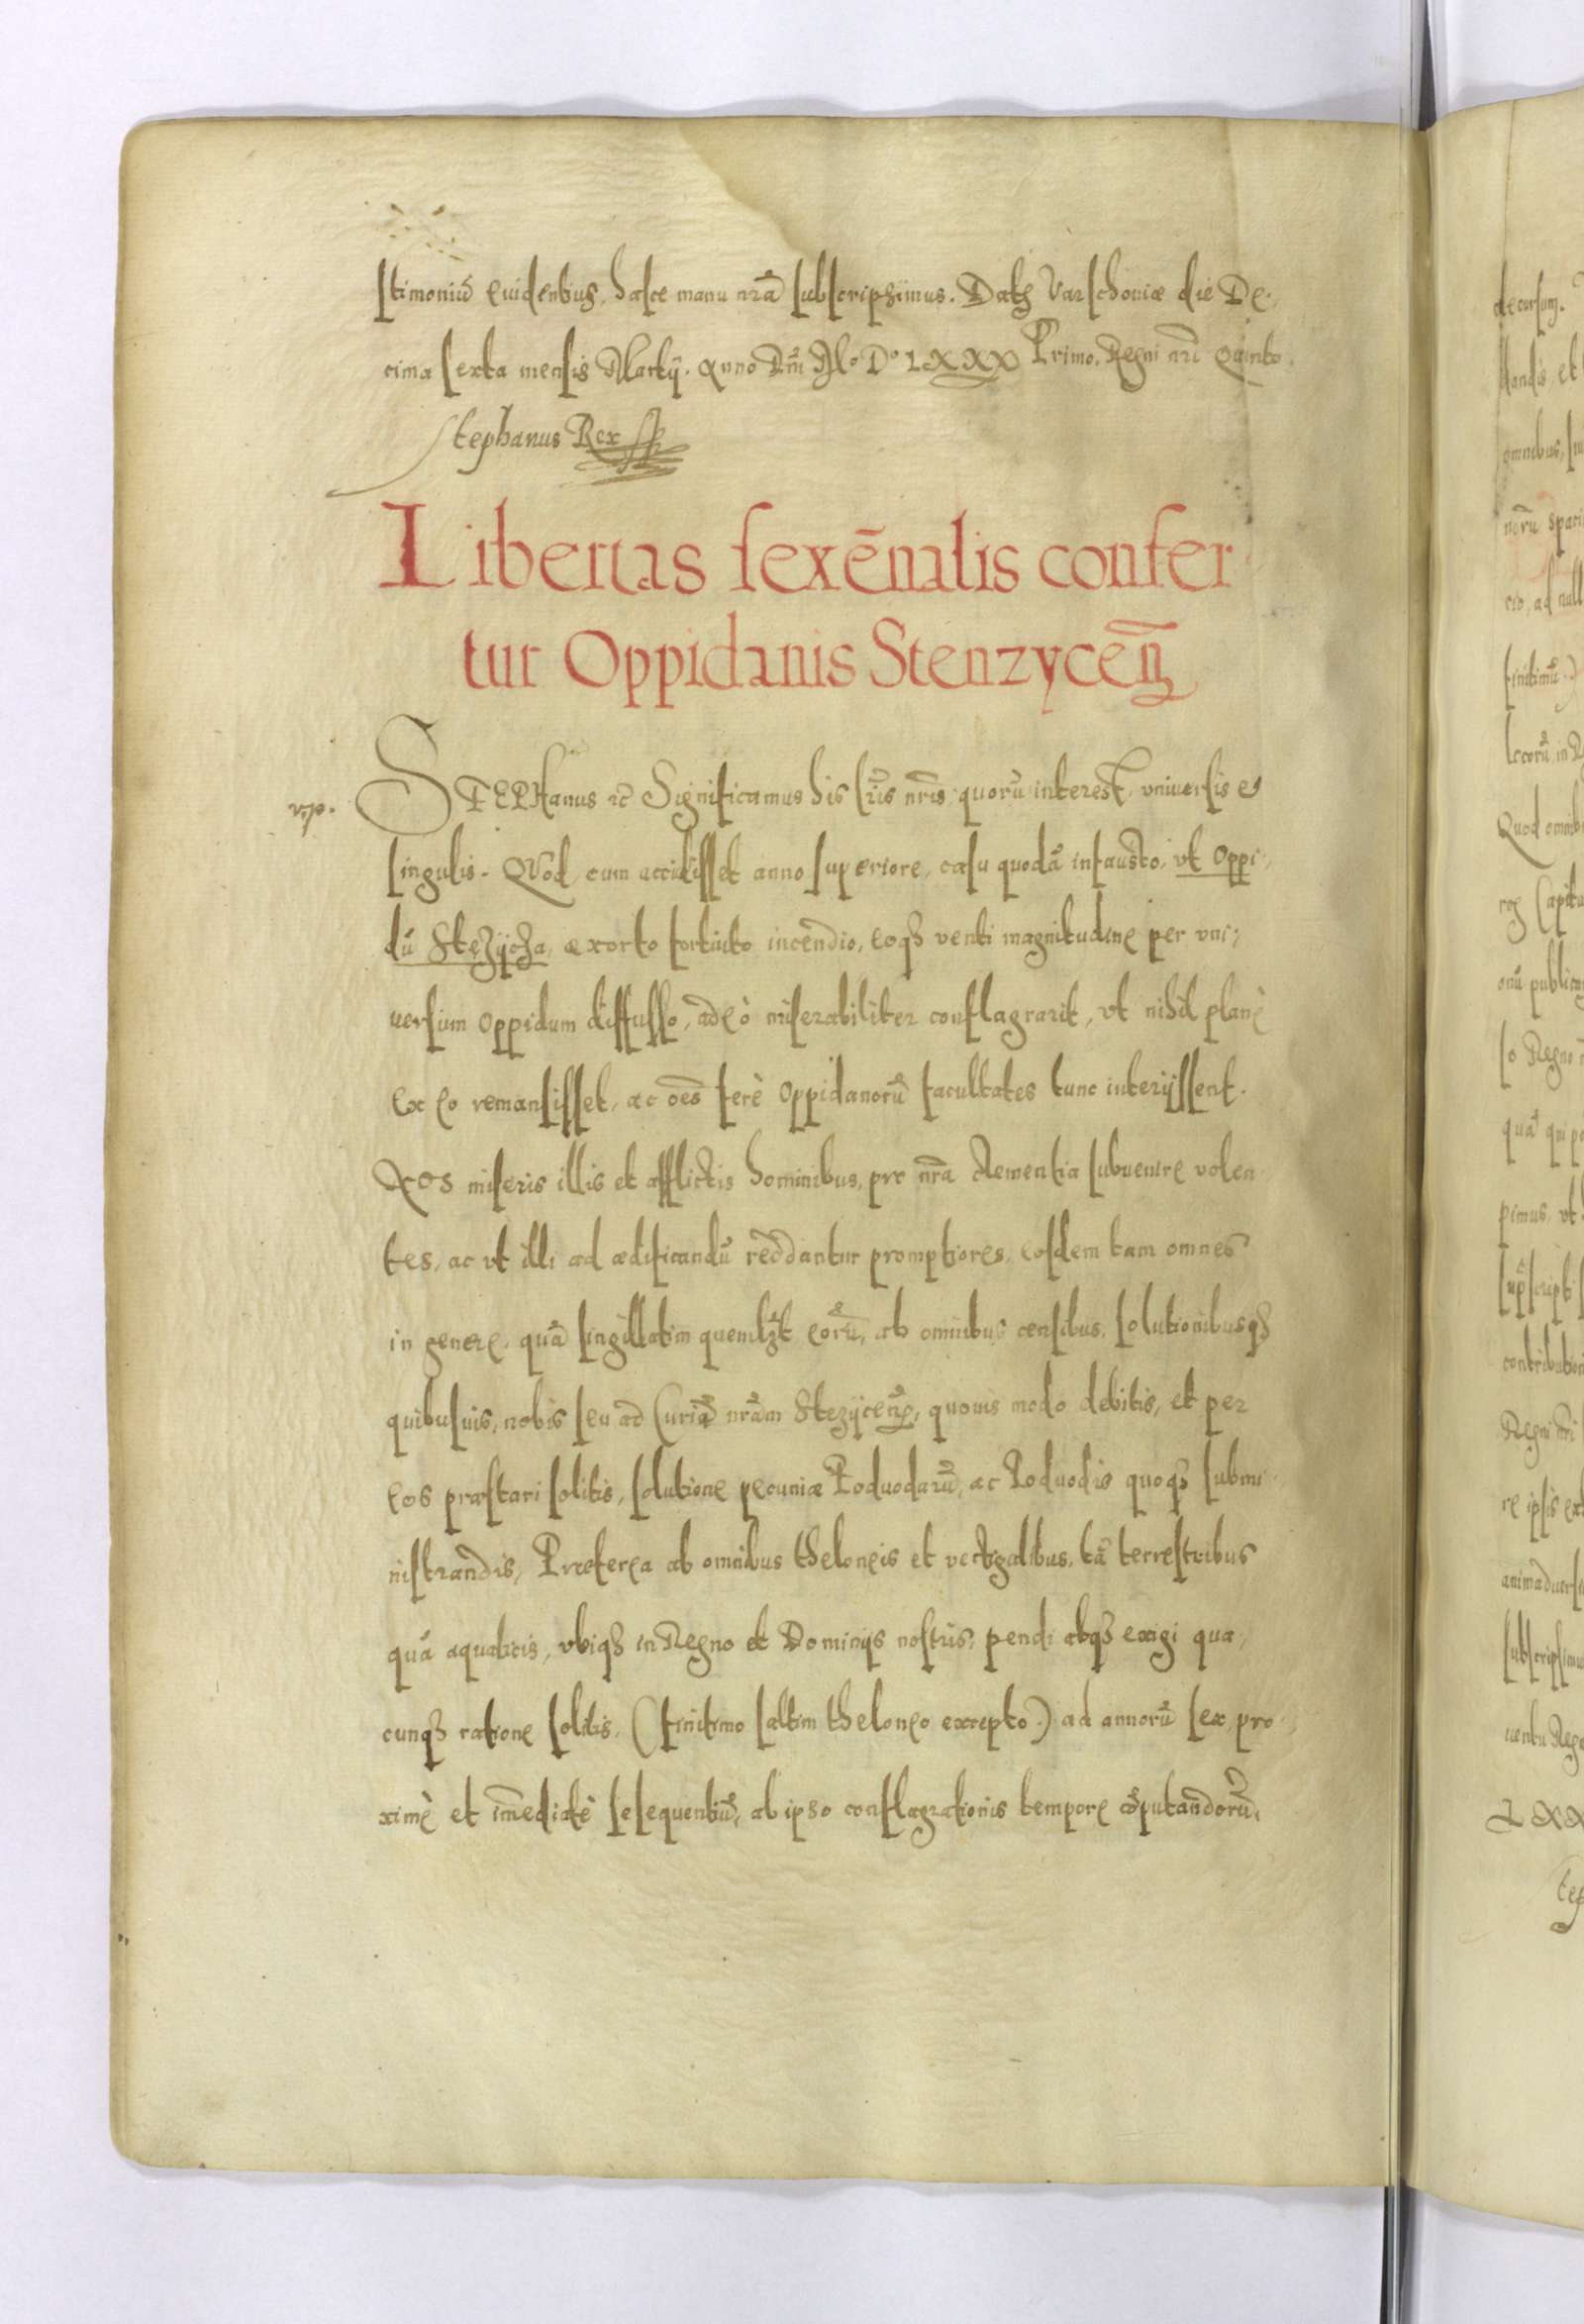 stimoniũ euidentius, hasce manu nr̃a subscripsimus. Datꝫ Varschouiæ die De-
cima sexta mensis Martij. Anno Dñi M.º Dº LXXX Primo. Regni nr̃i Quinto.
Stephanus Rex
Libertas sexēnalis confer
tur Oppidanis Stenzycen̄
STEPHanus ꝛc̃ Significamus his lr̃is nr̃is quorũ interest, vniuersis et
singulis. QVod cum accidisset anno superiore, casu quodã infausto, vt Oppi-
dũ Stezÿcza, exorto fortuito incendio, eoqꝫ venti magnitudine per vni-
uersum Oppidum diffusso, adeò miserabiliter conflagrarit, vt nihil planè
ex eo remansisset, ac oẽs ferè Oppidanorũ facultates tunc interijssent.
NOS miseris illis et afflictis hominibus, pro nr̃a clementia subuenire volen
tes, ac vt illi ad ædificandũ reddantur promptiores, eosdem tam omnes
in genere, quã singillatim quemlꝫt eorũ, ab omnibus censibus, solutionibusqꝫ
quibusuis, nobis seu ad Curiã nr̃am Stezÿcen̄, quouis modo debitis, et per
eos præstari solitis, solutione pecuniæ Poduodarũ, ac Poduodis quoqꝫ submi-
nistrandis, Præterea ab omnibus theloneis et vectigalibus, tã terrestribus
quã aquaticis, vbiqꝫ in Regno et Dominijs nostris, pendi atqꝫ exigi qua-
cunqꝫ ratione solitis, (finitimo saltim theloneo excepto.) ad annorũ sex pro-
ximè et im̃ediatè se sequentiũ, ab ipso conflagrationis tempore cõputandorũ,